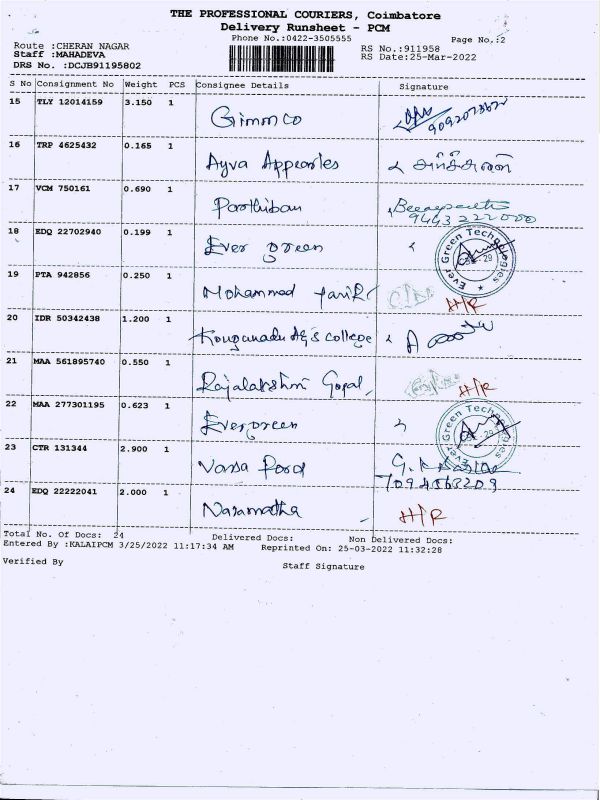 THE PROFESSIONAL COURIERS, Coimbatore
Delivery Runsheet - PCM
Phone No.:0422-3505555 Page No.:2
Route :CHERAN NAGAR RS No.:911958
Staff :MAHADEVA RS Date:25-Mar-2022
DRS No. :DCJB91195802
S No Consignment No Weight PCS Consignee Details Signature
15 TLY 12014159 3.150 1 Gimmco
16 TRP 4625432 0.165 1 Ayva
17 VCM 750161 0.690 1 Parthiban
9443222000
18 EDQ 22702940 0.199 1 Ever green Ever Green Technologies
19 PTA 942856 0.250 1 Mohammed H/R
20 IDR 50342438 1.200 1 college
21 MAA 561895740 0.550 1 Rajalakshmi Gopal H/R
22 MAA 277301195 0.623 1 Evergreen Ever Green Technologies
23 CTR 131344 2.900 1
24 EDQ 22222041 2.000 1 H/R
Total No. Of Docs: 24 Delivered Docs: Non Delivered Docs:
Entered By :KALAIPCM 3/25/2022 11:17:34 AM Reprinted On: 25-03-2022 11:32:28
Verified By Staff Signature